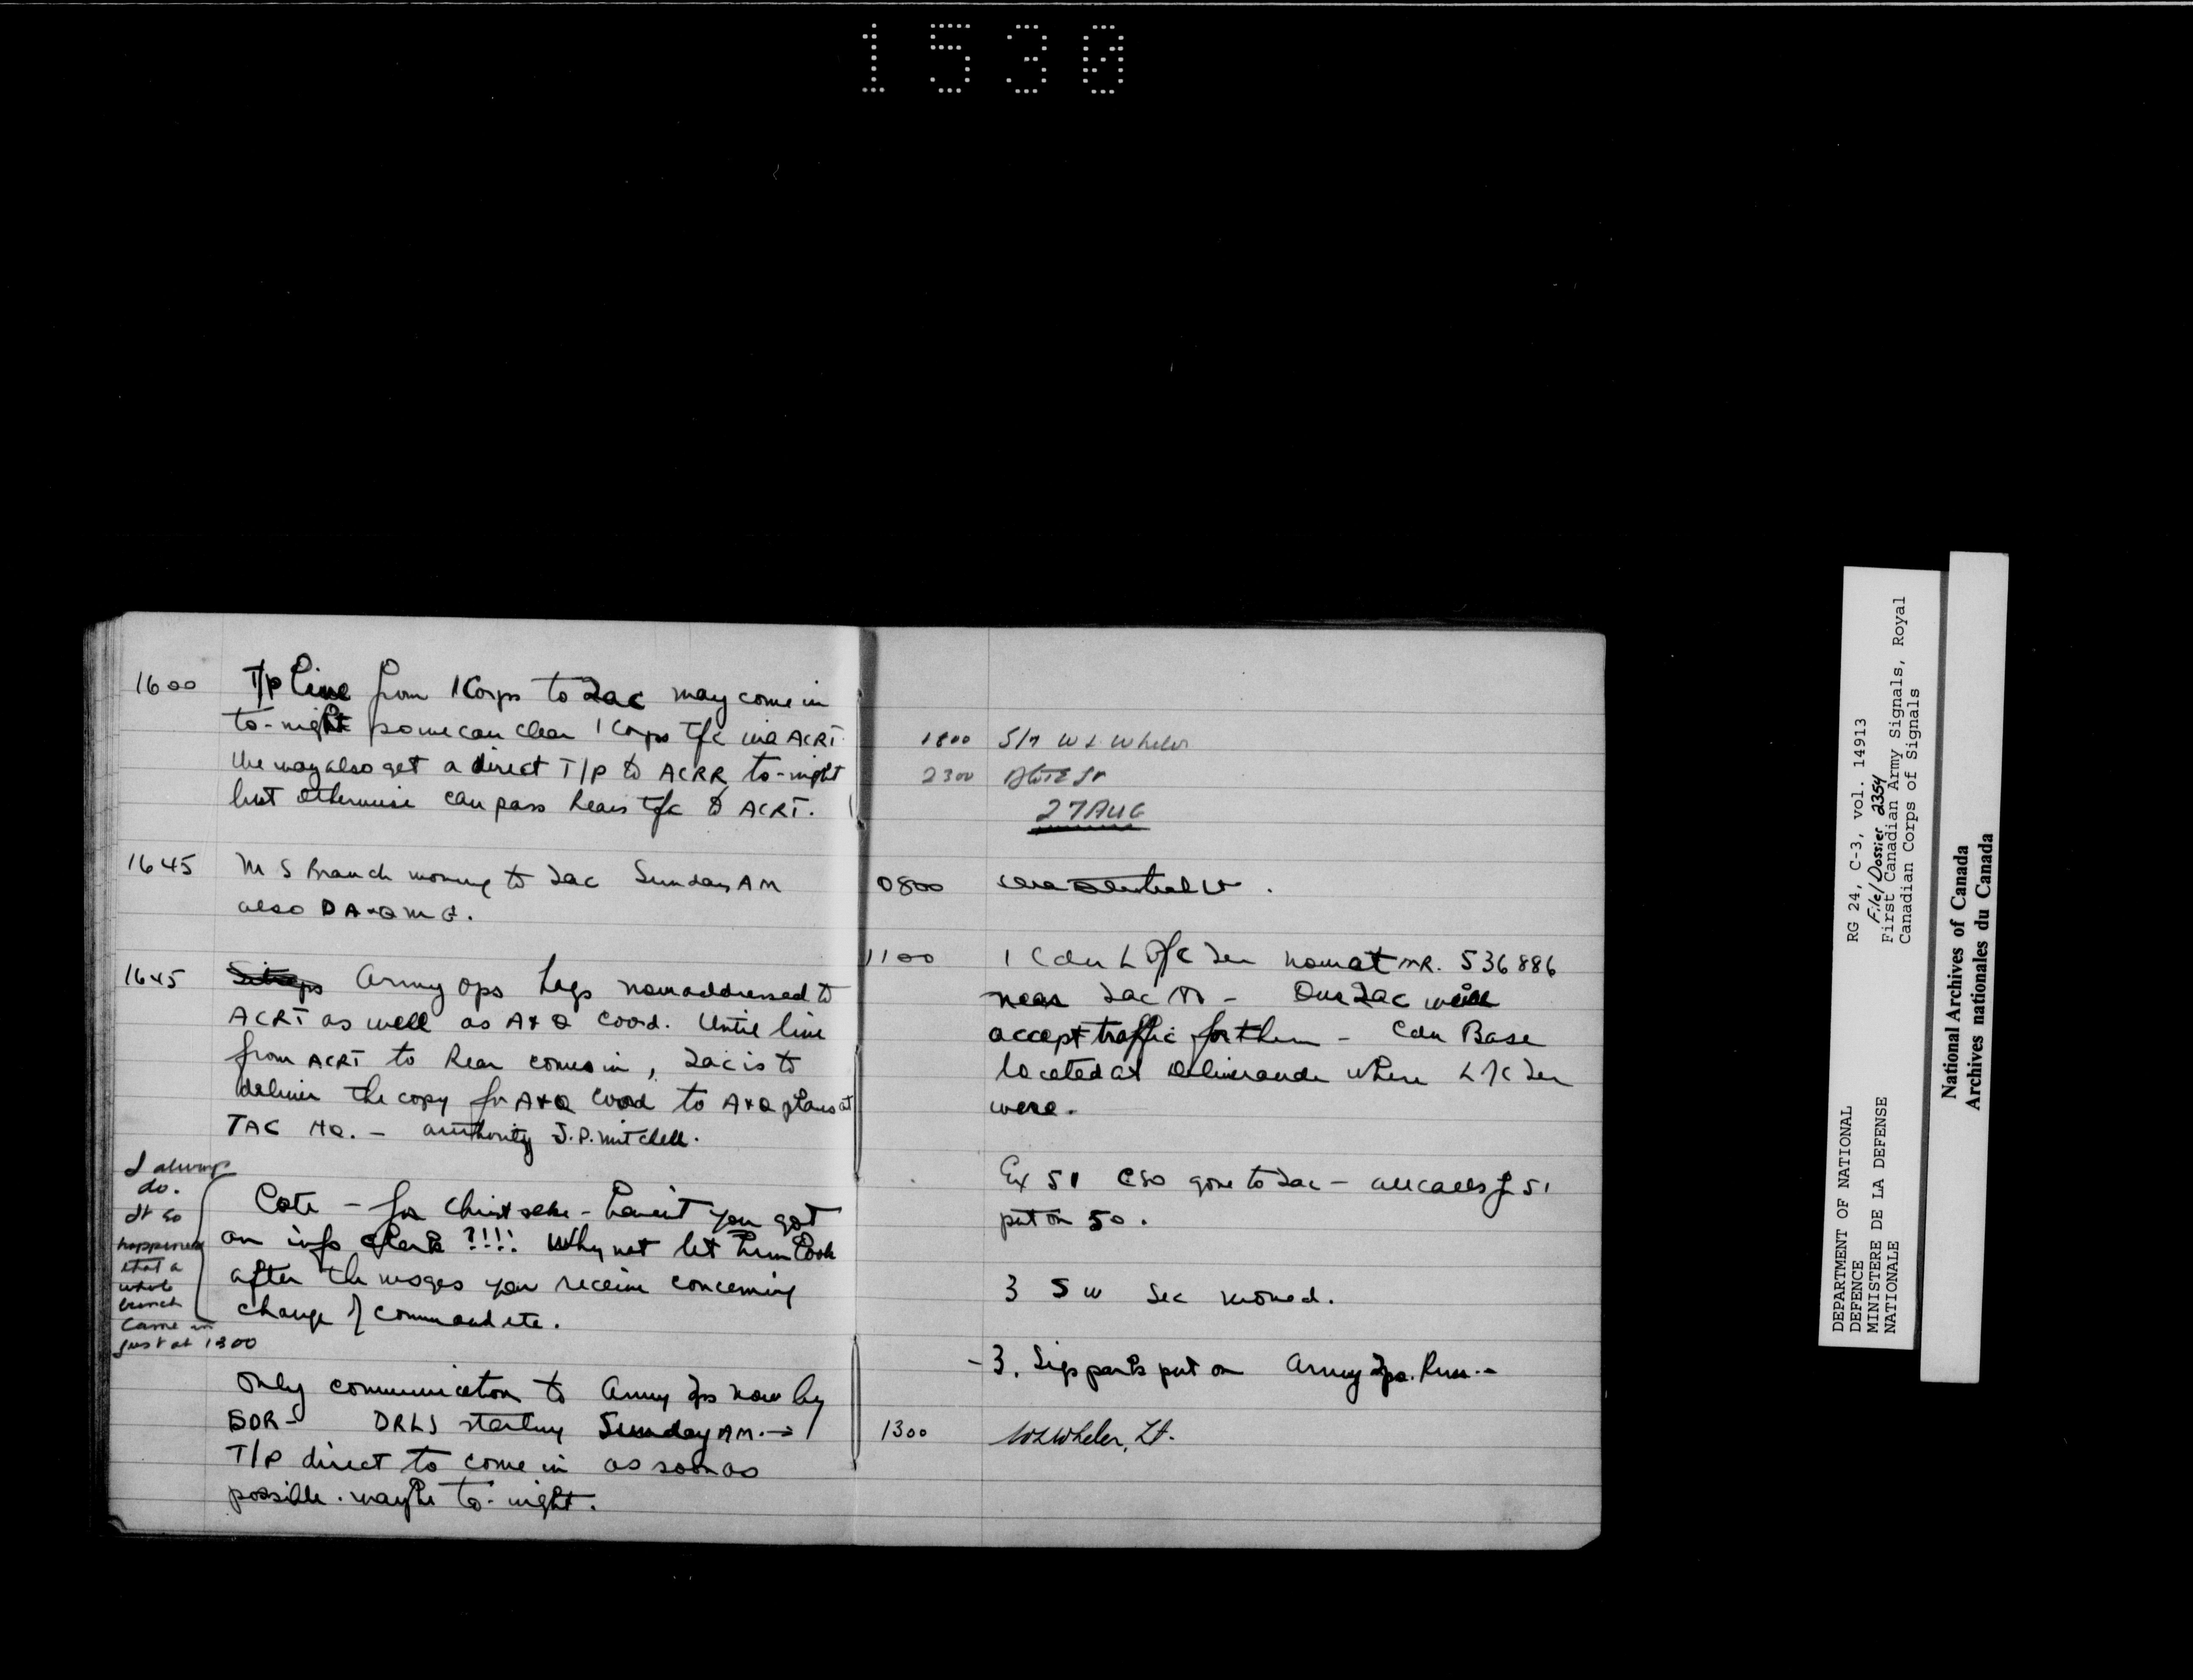 1530
1600 T/P line from 1 Corps to Tac may come in
to-night so we can clear 1 Corps tfc via ACRT.
We may also get a direct T/P to ACRR to-night
but otherwise can pass Rears tfc to ACRT.
1645 M S Branch moving to Tac Sunday AM
also DA&QMG.
1645 Sitreps Army Ops Logs now addressed to
ACRT as well as A&Q Coord. Until line
from ACRT to Rear comes in, Tac is to
deliver the copy for A&Q Coord to A&Q plans at
TAC HQ. - authority J.P. Mitchell.
I always
do.
It so
happened
that a
whole
bunch
came in
just at 1300
Cote - for Christ sake - haven't you got
an info clerk ?!!!! Why not let him look
after the msges you receive concerning
change of command etc.
Only communication to Army Tps now by
SDR - DRLS starting Sunday AM. →
T/P direct to come in as soon as
possible. maybe to-night.
1800 S/M W L Wheler
2300
27 AUG
0800
1100 1 Cdn L of C Ter now at MR. 536886
near Tac - Our Tac will
accept traffic for them - Cdn Base
located at Deliverande where L/C Ter
were.
Ex 51 CSO gone to Tac - all calls for 51
put on 50.
3 SW Sec moved.
- 3. Sigs parks put on Army Tps. Run. -
1300 WLWheler, Lt.
DEPARTMENT OF NATIONAL
DEFENCE
MINISTERE DE LA DEFENSE
NATIONALE
RG 24, C-3, vol. 14913
File/Dossier 2354
First Canadian Army Signals, Royal
Canadian Corps of Signals
National Archives of Canada
Archives nationales du Canada